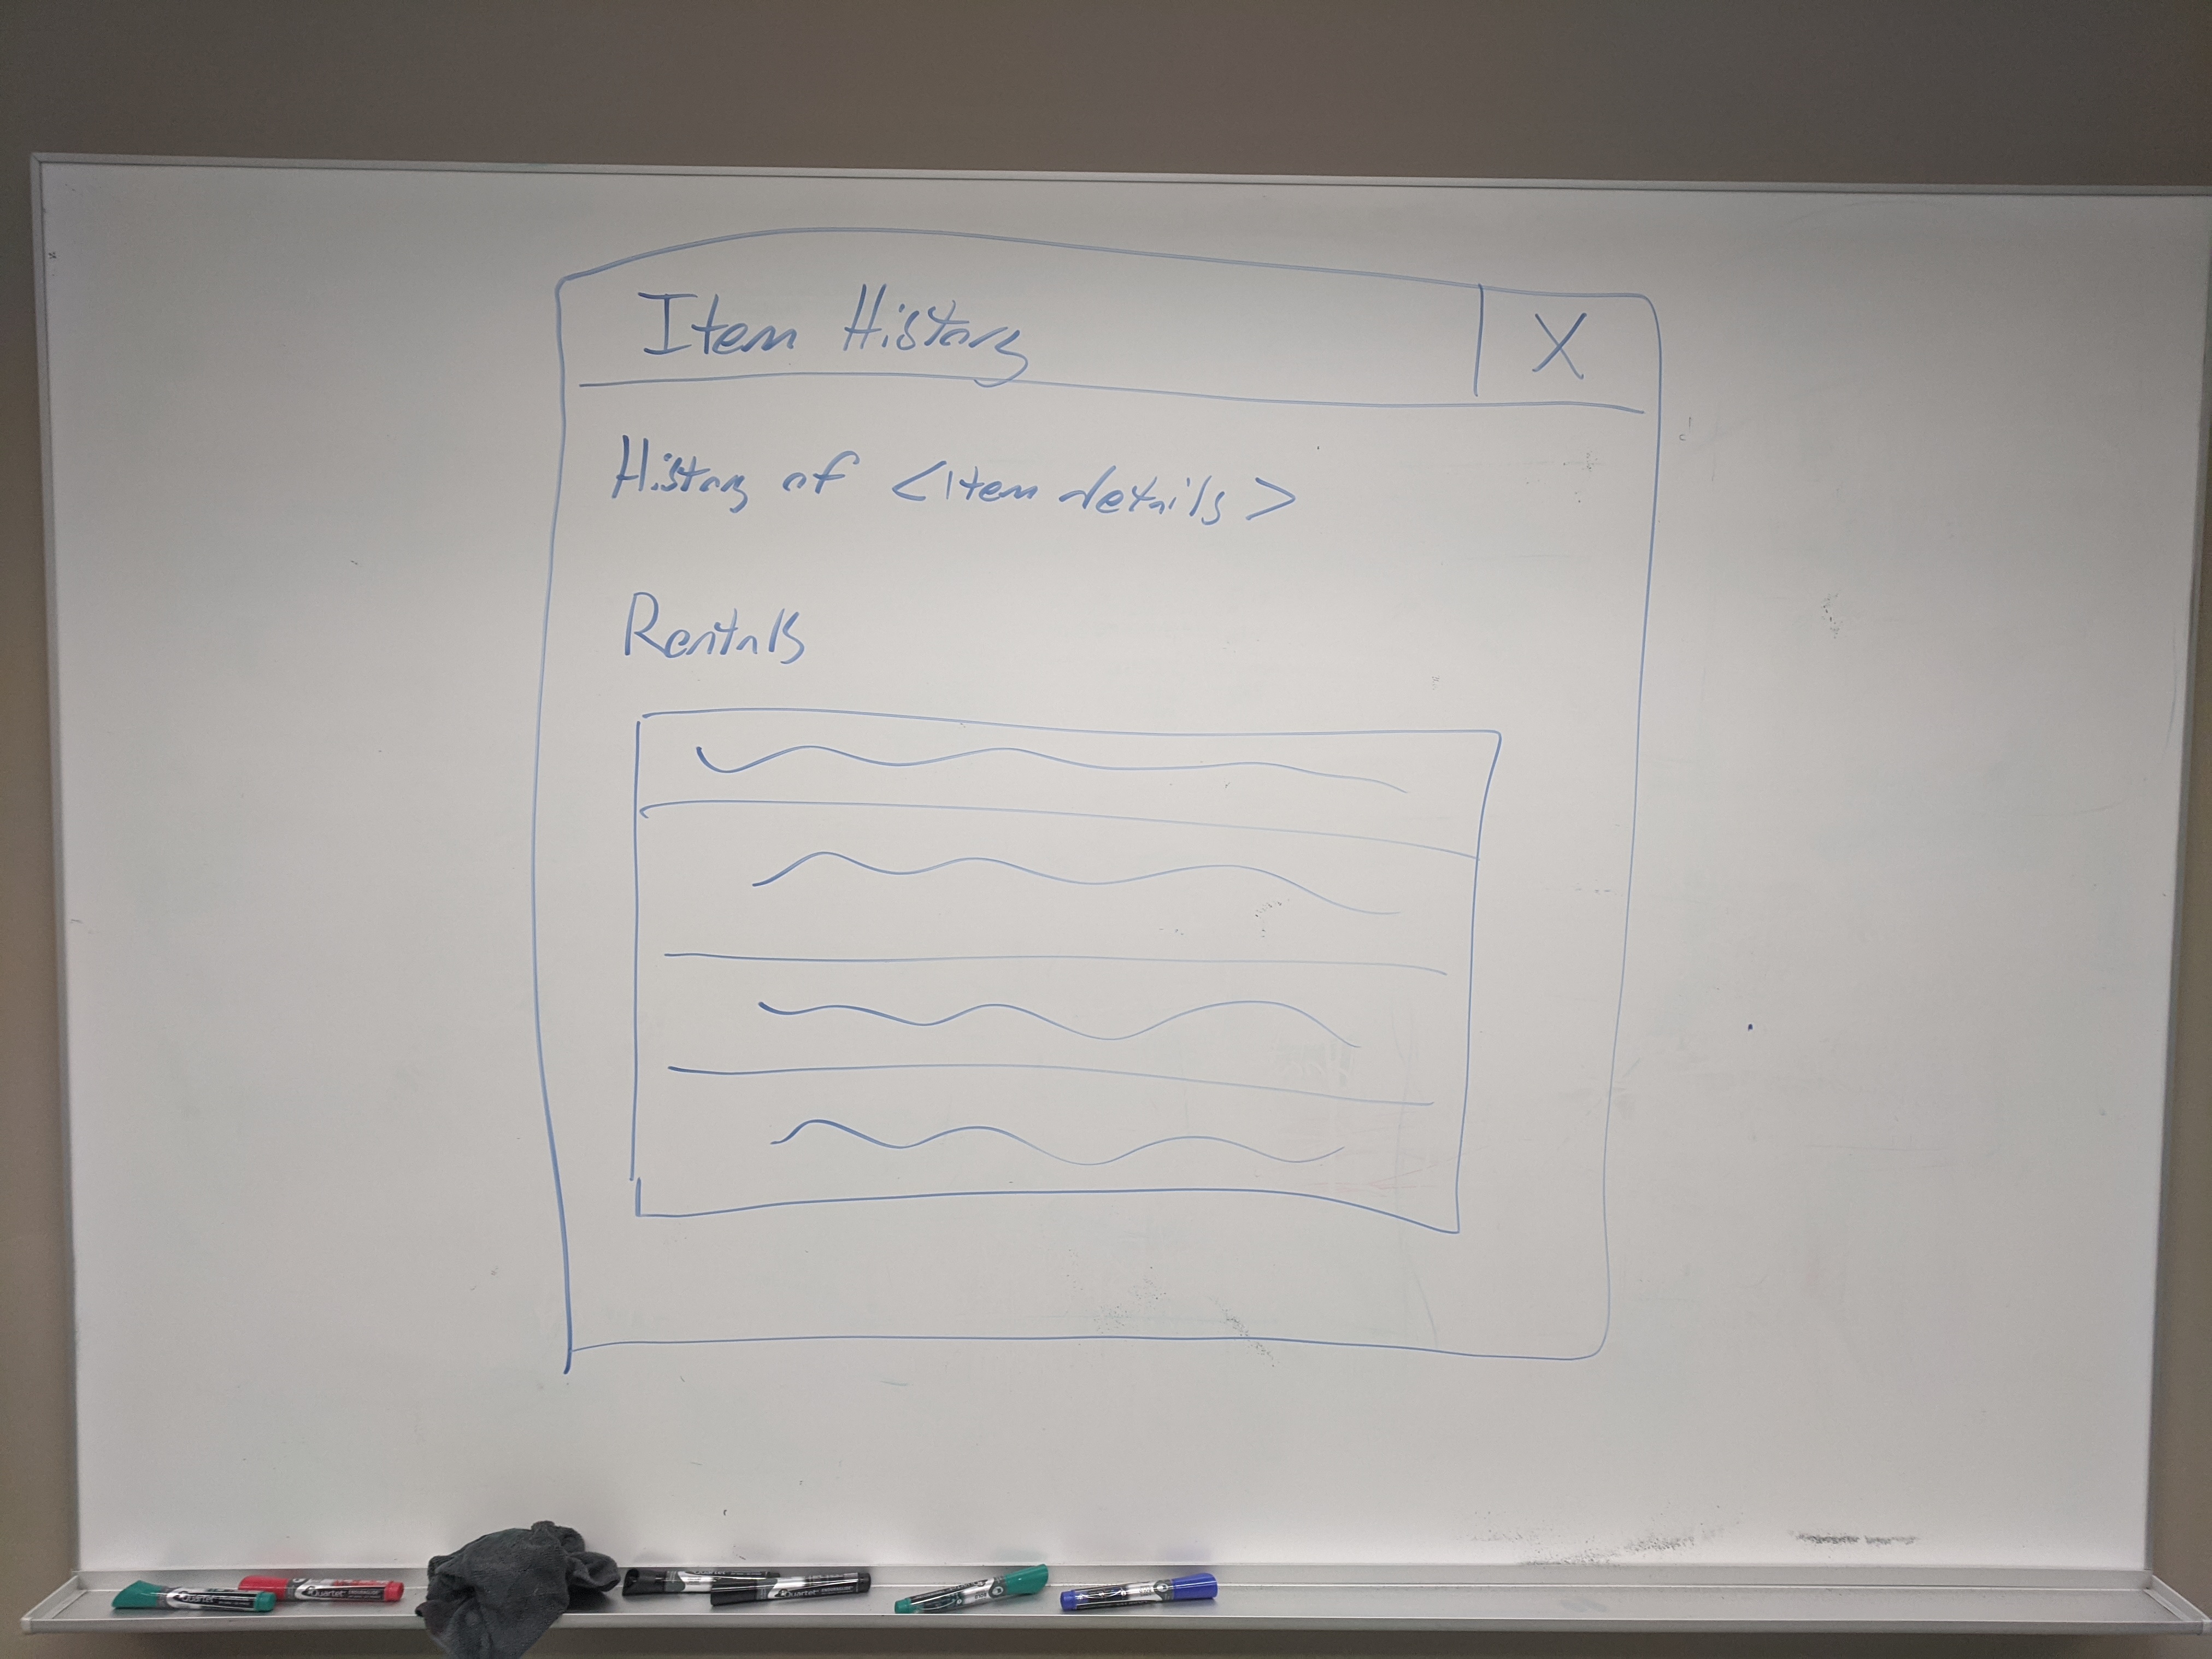 Item History
X
History of <item details>
Rentals
Quartet
Quartet